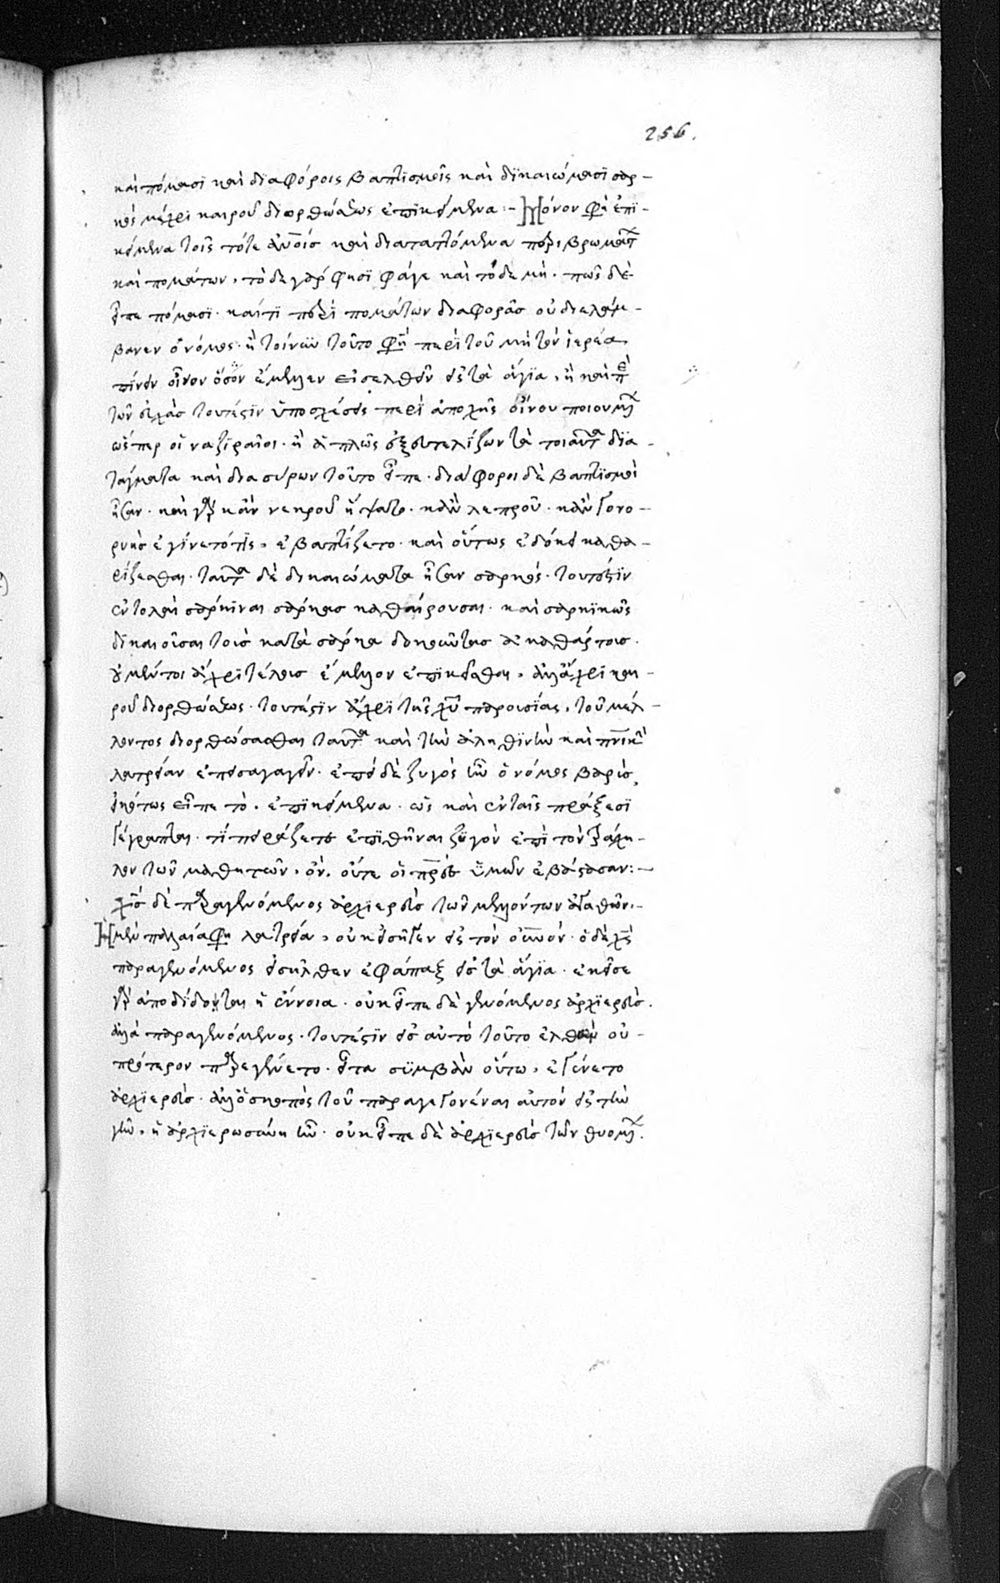 256.
καὶ πόμασι καὶ διαφόροις βαπτισμοῖς καὶ δικαιώμασι σαρ-
κὸς μέχρι καιροῦ διορθώσεως ἐπικείμενα :- Μόνον φη ἐπι-
κείμενα τοῖς τότε ἀνοις καὶ διαταττόμενα περι βρωμάτ
καὶ πομάτων, τὸ δε γάρ φησι φάγε καὶ τόδε μή. πῶς δὲ
εἶπε πόμασι. καίτι περὶ πομάτων διαφορᾶς οὐ διελάμ-
βανεν ὁ νόμος. ἢ τοίνυν τοῦτο φη περὶ τοῦ μὴ τὸν ἱερέα
πίνειν οἶνον ὅσον ἔμελλεν εἰσελθεῖν εἰς τὰ ἅγια, ἢ καὶ π
τῶν εὐχὰς τουτέστιν ὑποσχέσεις περὶ ἀποχῆς οἴνου ποιουμ
ὥσπερ οἱ ναζιραῖοι. ἢ ἁπλῶς ἐξευτελίζων τὰ τοιαῦτα δια-
τάγματα καὶ διασύρων τοῦτο εἶπε. διάφοροι δὲ βαπτισμοὶ
ἦσαν. καὶ γὰρ κἂν νεκροῦ ἥψατο. κἂν λεπροῦ. κἂν γονο-
ρυὴς ἐγίνετό τις, ἐβαπτίζετο. καὶ οὕτως ἐδόκει καθα-
ρίζεσθαι. ταῦτα δὲ δικαιώματα ἦσαν σαρκός. τουτέστιν
ἐντολαὶ σαρκιναι σάρκας καθαίρουσαι. καὶ σαρκικῶς
δικαιοῦσαι τοὺς κατὰ σάρκα δοκοῦντας ἀκαθάρτους.
οὐ μέντοι ἄχρι τέλους ἔμελλον ἐπικεῖσθαι, ἀλλ' ἄχρι και-
ροῦ διορθώσεως. τουτέστιν ἄχρι τῆς χυ παρουσίας, τοῦ μέλ-
λοντος διορθώσασθαι ταῦτα καὶ τὴν ἀληθινὴν καὶ πνικὴν
λατρείαν ἐπεισαγαγεῖν. ἐπεὶ δὲ ζυγὸς ἦν ὁ νόμος βαρὺς,
εἰκότως εἶπε τὸ. ἐπικείμενα. ὡς καὶ ἐν ταῖς πράξεσι
γέγραπται. τί πειράζετε ἐπιθῆναι ζυγὸν ἐπὶ τὸν τράχη-
λον τῶν μαθητῶν, ὃν. οὔτε οἱ πρες ὑμῶν ἐβάστασαν:-
χς δὲ παραγενόμενος ἀρχιερεὺς τῶν μελλόντων ἀγαθῶν,-
Ἡ μὲν παλαιά φη λατρεία, οὐκ εἰσῆγεν εἰς τὸν οὐνον. ὁ δὲ χς
παραγενόμενος εἰσῆλθεν ἐφάπαξ εἰς τὰ ἅγια. ἐκεῖσε
γὰρ ἀποδίδοται ἡ ἔννοια. οὐκ εἶπε δὲ γενόμενος ἀρχιερεὺς.
ἀλλὰ παραγενόμενος. τουτέστιν εἰς αὐτὸ τοῦτο ἐλθὼν οὐ-
πρότερον παρεγένετο. εἶτα συμβὰν οὕτω, ἐγένετο
ἀρχιερεὺς. ἀλλ' ὁ σκοπὸς τοῦ παραγεγονέναι αὐτὸν εἰς τὴν
γῆν, ἡ ἀρχιερωσύνη ἦν. οὐκ εἶπε δὲ ἀρχιερεὺς τῶν θυομ.